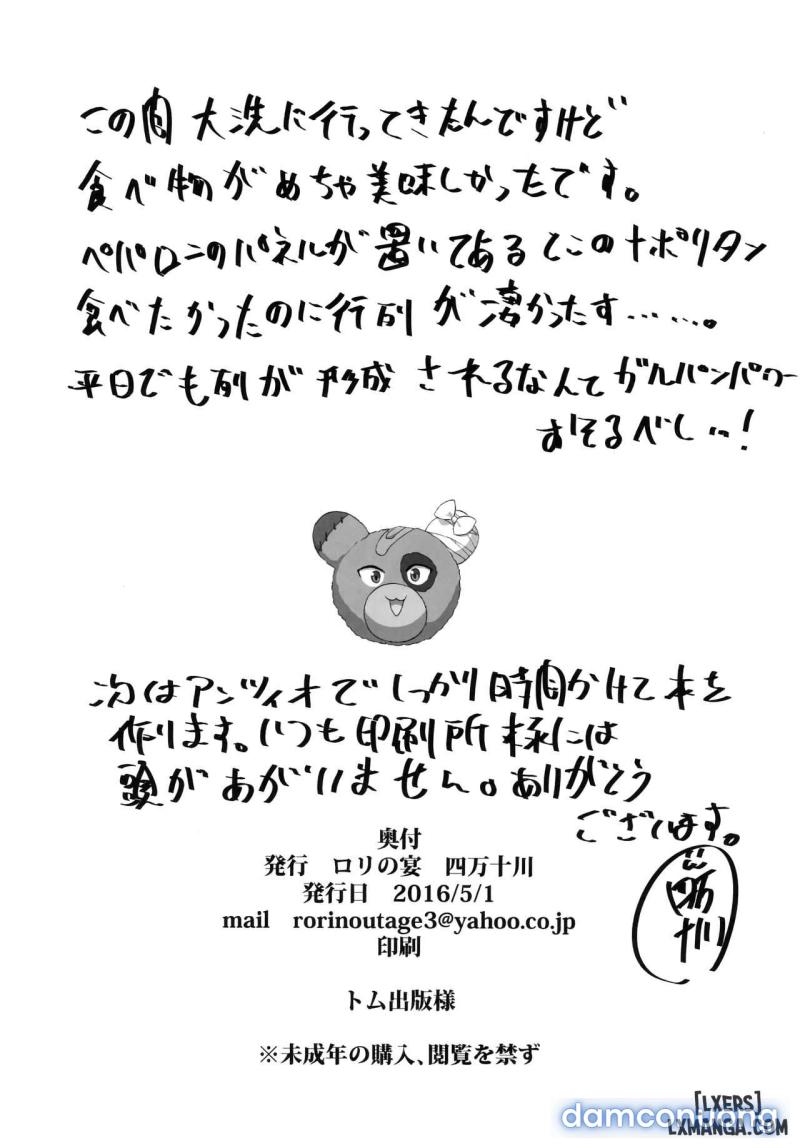 この間大洗に行ってきたんですけど
食べ物がめちゃ美味しかったです。
ペパロニのパネルが置いてあるとこのナポリタン
食べたかったのに行列が凄かったす……。
平日でも列が形成されるなんてガルパンパワー
おそるべし…!
次はアンツィオでしっかり時間かけて本を
作ります。いつも印刷所様には
頭があがいません。ありがとう
ございます。
四万十川
奥付
発行 ロリの宴 四万十川
発行日 2016/5/1
mail rorinoutage3@yahoo.co.jp
印刷
トム出版様
※未成年の購入、閲覧を禁ず
[LXERS]
LXMANGA.COM